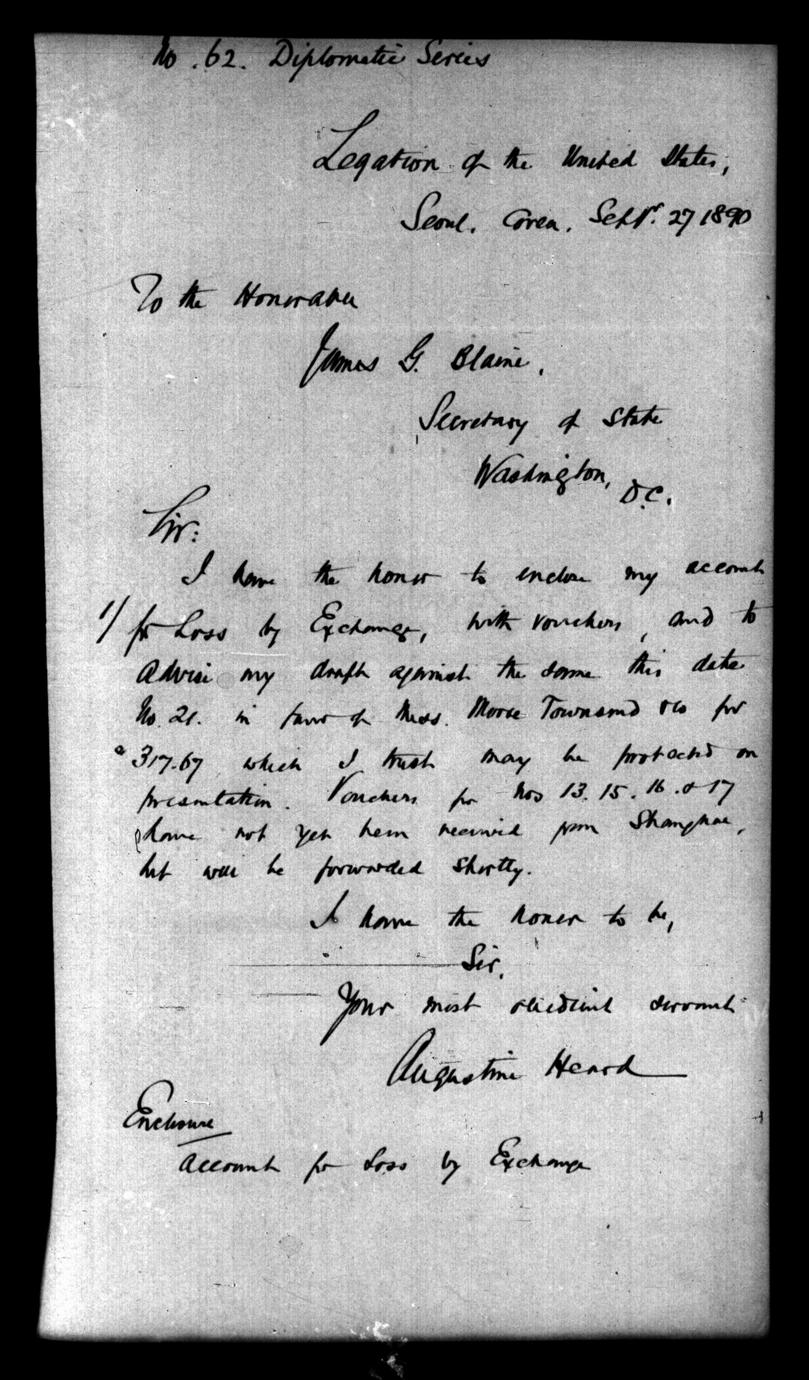 No. 62. Diplomatic Series
Legation of the United States,
Seoul, Corea, Septr. 27 1890
To the Honorable
James G. Blaine,
Secretary of State
Washington, D.C.
Sir:
I have the honor to enclose my account
1/ for Loss by Exchange, with vouchers, and to
advise my draft against the same this date
No. 21. in favor of Mess. Morse Townsend &co for
$317.67 which I trust may be protected on
presentation. Vouchers for Nos 13. 15. 16. & 17
have not yet been received from Shanghae,
but will be forwarded shortly.
I have the honor to be,
Sir,
Your most obedient servant
Augustine Heard
Enclosure
Account for Loss by Exchange